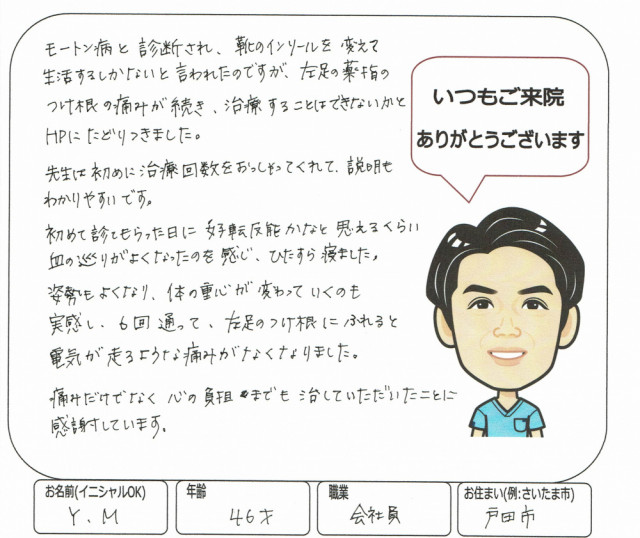 モートン病と診断され、靴のインソールを変えて
生活するしかないと言われたのですが、左足の薬指の
つけ根の痛みが続き、治療することはできないかと
HPにたどりつきました。
先生は初めに治療回数をおっしゃってくれて、説明も
わかりやすいです。
初めて診てもらった日に好転反応かなと思えるくらい
血の巡りがよくなったのを感じ、ひたすら寝ました。
姿勢もよくなり、体の重心が変わっていくのも
実感し、6回通って、左足のつけ根にふれると
電気が走るような痛みがなくなりました。
痛みだけでなく心の負担までも治していただいたことに
感謝しています。
いつもご来院
ありがとうございます
お名前(イニシャルOK)
Y.M
年齢
46才
職業
会社員
お住まい(例:さいたま市)
戸田市